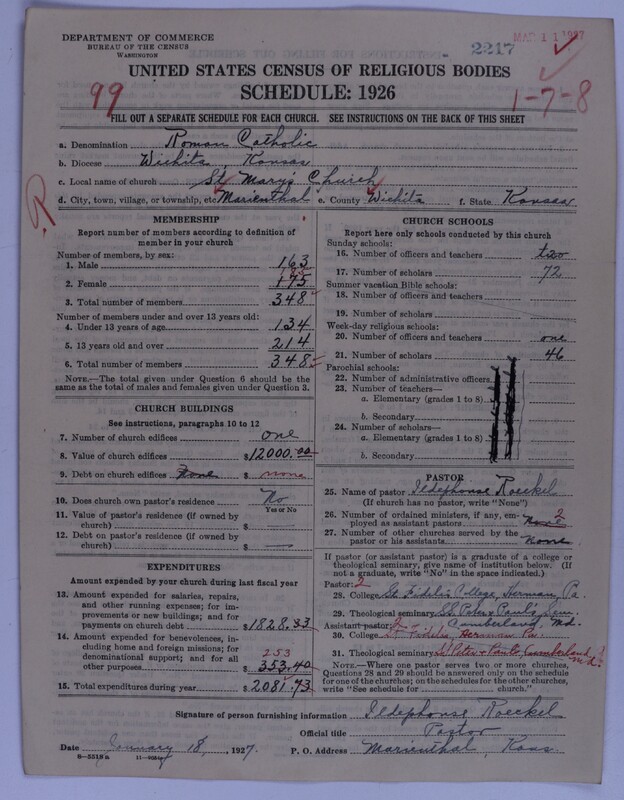 DEPARTMENT OF COMMERCE
BUREAU OF THE CENSUS
WASHINGTON
2217
MAR 11 1927
UNITED STATES CENSUS OF RELIGIOUS BODIES
SCHEDULE: 1926
99
1-7-8
FILL OUT A SEPARATE SCHEDULE FOR EACH CHURCH. SEE INSTRUCTIONS ON THE BACK OF THIS SHEET
a. Denomination Roman Catholic
b. Diocese Wichita, Kansas
c. Local name of church St Mary's Church
d. City, town, village, or township, etc. Marienthal e. County Wichita f. State Kansas
R
MEMBERSHIP
Report number of members according to definition of
member in your church
Number of members, by sex:
1. Male 163
2. Female 185
3. Total number of members 348
Number of members under and over 13 years old:
4. Under 13 years of age 134
5. 13 years old and over 214
6. Total number of members 348
NOTE.—The total given under Question 6 should be
same as the total of males and females given under Question 3.
CHURCH BUILDINGS
See instructions, paragraphs 10 to 12
7. Number of church edifices one
8. Value of church edifices $12000.00
9. Debt on church edifices None $ none
10. Does church own pastor's residence No
Yes or No
11. Value of pastor's residence (if owned by
church) $
12. Debt on pastor's residence (if owned by
church) $
EXPENDITURES
Amount expended by your church during last fiscal year
13. Amount expended for salaries, repairs,
and other running expenses; for im-
provements or new buildings; and for
payments on church debt $1828.33
14. Amount expended for benevolences, in-
cluding home and foreign missions; for
denominational support; and for all
other purposes 253 $353.40
15. Total expenditures during year $2081.73
CHURCH SCHOOLS
Report here only schools conducted by this church
Sunday schools:
16. Number of officers and teachers two
17. Number of scholars 72
Summer vacation Bible schools:
18. Number of officers and teachers
19. Number of scholars
Week-day religious schools:
20. Number of officers and teachers one
21. Number of scholars 46
Parochial schools:
22. Number of administrative officers
23. Number of teachers—
a. Elementary (grades 1 to 8)
b. Secondary
24. Number of scholars—
a. Elementary (grades 1 to 8)
b. Secondary
PASTOR
25. Name of pastor Ildephonse Roeckel
(If church has no pastor, write "None")
26. Number of ordained ministers, if any, em-
ployed as assistant pastors None 2
27. Number of other churches served by the
pastor or his assistants None
If pastor (or assistant pastor) is a graduate of a college or
theological seminary, give name of institution below. (If
not a graduate, write "No" in the space indicated.)
Pastor: 2
28. College St Fidelis College, Herman, Pa.
29. Theological seminary SS. Peter & Paul's Sem.
Assistant pastor: 2 Cumberland, Md.
30. College St Fidelis, Herman Pa.
31. Theological seminary SS Peter & Paul's Cumberland, Md.
NOTE.—Where one pastor serves two or more churches,
Questions 28 and 29 should be answered only on the schedule
for one of the churches; on the schedules for the other churches,
write "See schedule for church."
Signature of person furnishing information Ildephonse Roeckel
Official title Pastor
Date January 18, 1927. P. O. Address Marienthal, Kans.
8-5319a